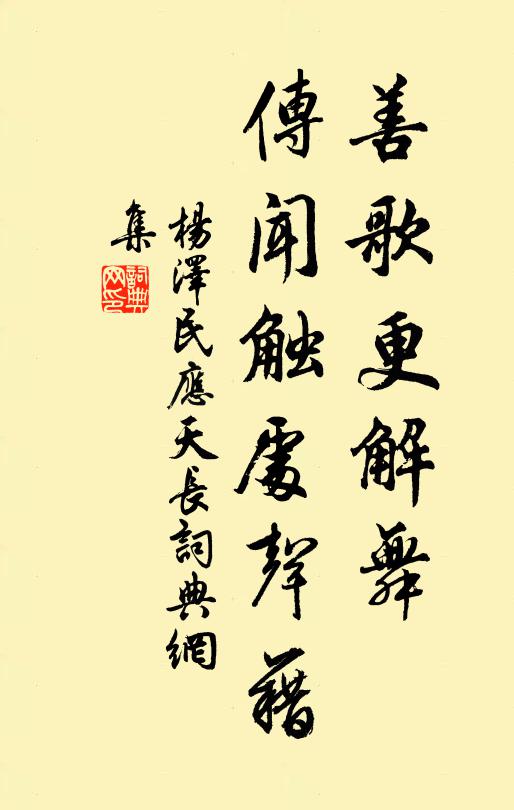 善歌更解舞
傳闻触處聲藉
楊澤民應天長詞典網
集
詞典
网印